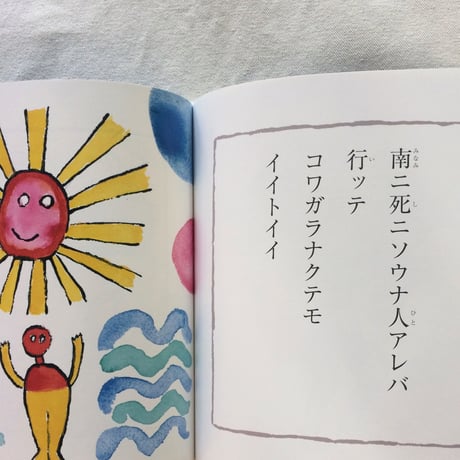 南ニ死ニソウナ人アレバ
行ッテ
コワガラナクテモ
イイトイイ